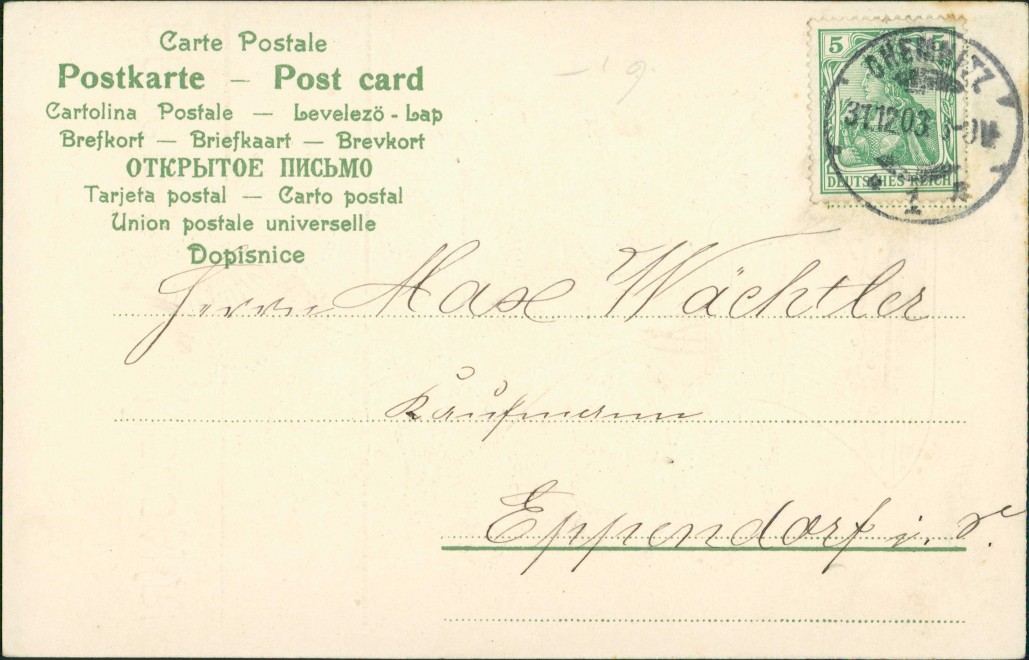 Carte Postale
Postkarte — Post card
Cartolina Postale — Levelező - Lap
Brefkort — Briefkaart — Brevkort
ОТКРЫТОЕ ПИСЬМО
Tarjeta postal — Carto postal
Union postale universelle
Dopisnice
5 5
DEUTSCHES REICH
CHEMNITZ
31.12.03
1
Herrn Max Wächtler
Kaufmann
Eppendorf i. S.